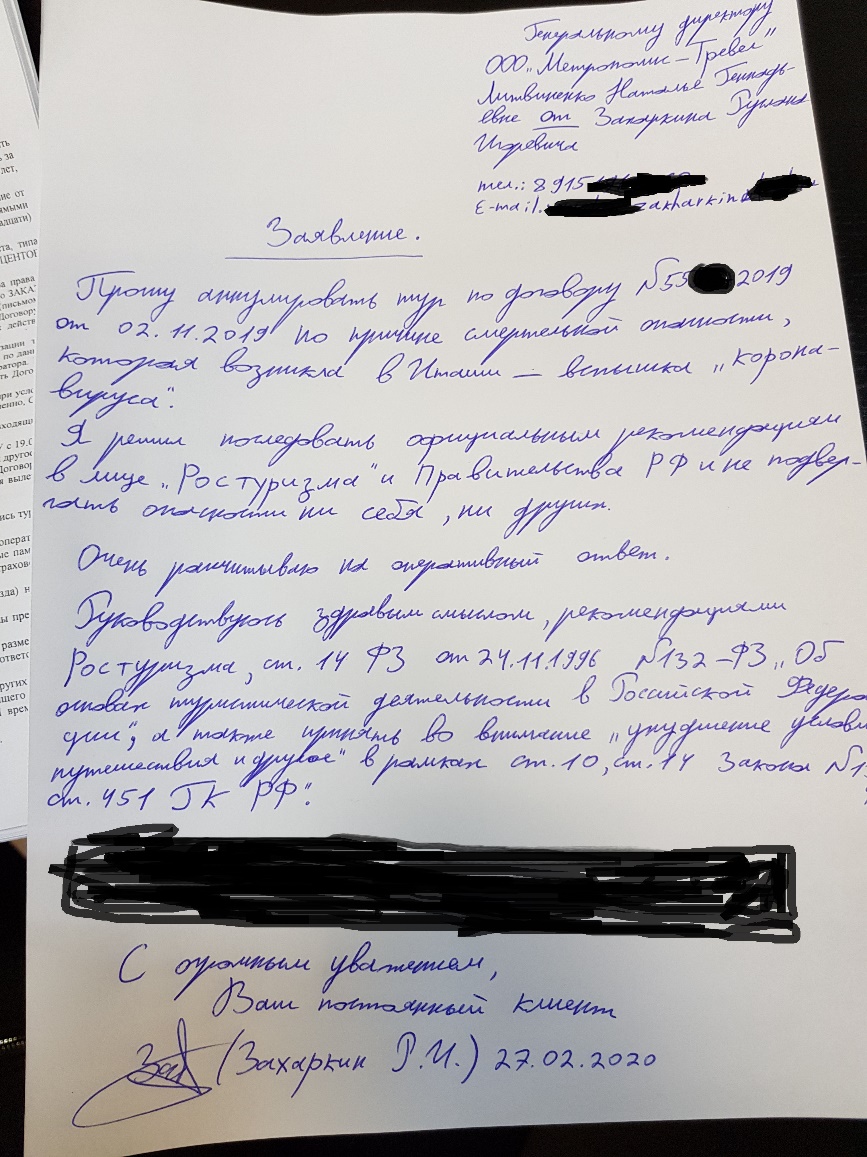 Генеральному директору
ООО „Метрополис – Тревел"
Литвиненко Наталье Геннадь-
евне от Захаркина Руслана
Игоревича
тел.: 8915
E-mail. zakharkin
Заявление.
Прошу аннулировать тур по договору №55 2019
от 02.11.2019 по причине смертельной опасности,
которая возникла в Италии – вспышка „корона-
вируса".
Я решил последовать официальным рекомендациям
в лице „Ростуризма" и Правительства РФ и не подвер-
гать опасности ни себя, ни других.
Очень рассчитываю на оперативный ответ.
Руководствуюсь здравым смыслом, рекомендациями
Ростуризма, ст. 14 ФЗ от 24.11.1996 №132–ФЗ „Об
основах туристической деятельности в Российской Федера
ции", а также принять во внимание „ухудшение услови
путешествия и другое" в рамках ст. 10, ст. 14 Закона №1
ст. 451 ГК РФ".
С огромным уважением,
Ваш постоянный клиент
(Захаркин Р.И.) 27.02.2020
ЦЕНТОВ